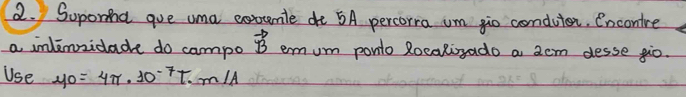 2. Suponha que uma corrente de 5A percorra um fio condutor. Encontre
a intensidade do campo B⃗ em um ponto localizado a 2cm desse fio.
Use μ0 = 4π . 10⁻⁷ T. m/A